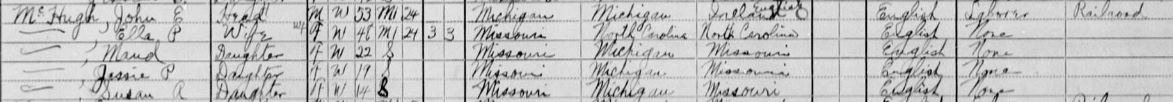 McHugh, John E. Head M W 53 M1 24 Michigan Michigan Ireland English English Laborer Railroad
—, Ella P Wife F W 46 M1 24 3 3 Missouri North Carolina North Carolina English None
—, Maud Daughter F W 22 S Missouri Michigan Missouri English None
—, Jessie P Daughter F W 19 S Missouri Michigan Missouri English None
—, Susan A Daughter F W 14 S Missouri Michigan Missouri English None